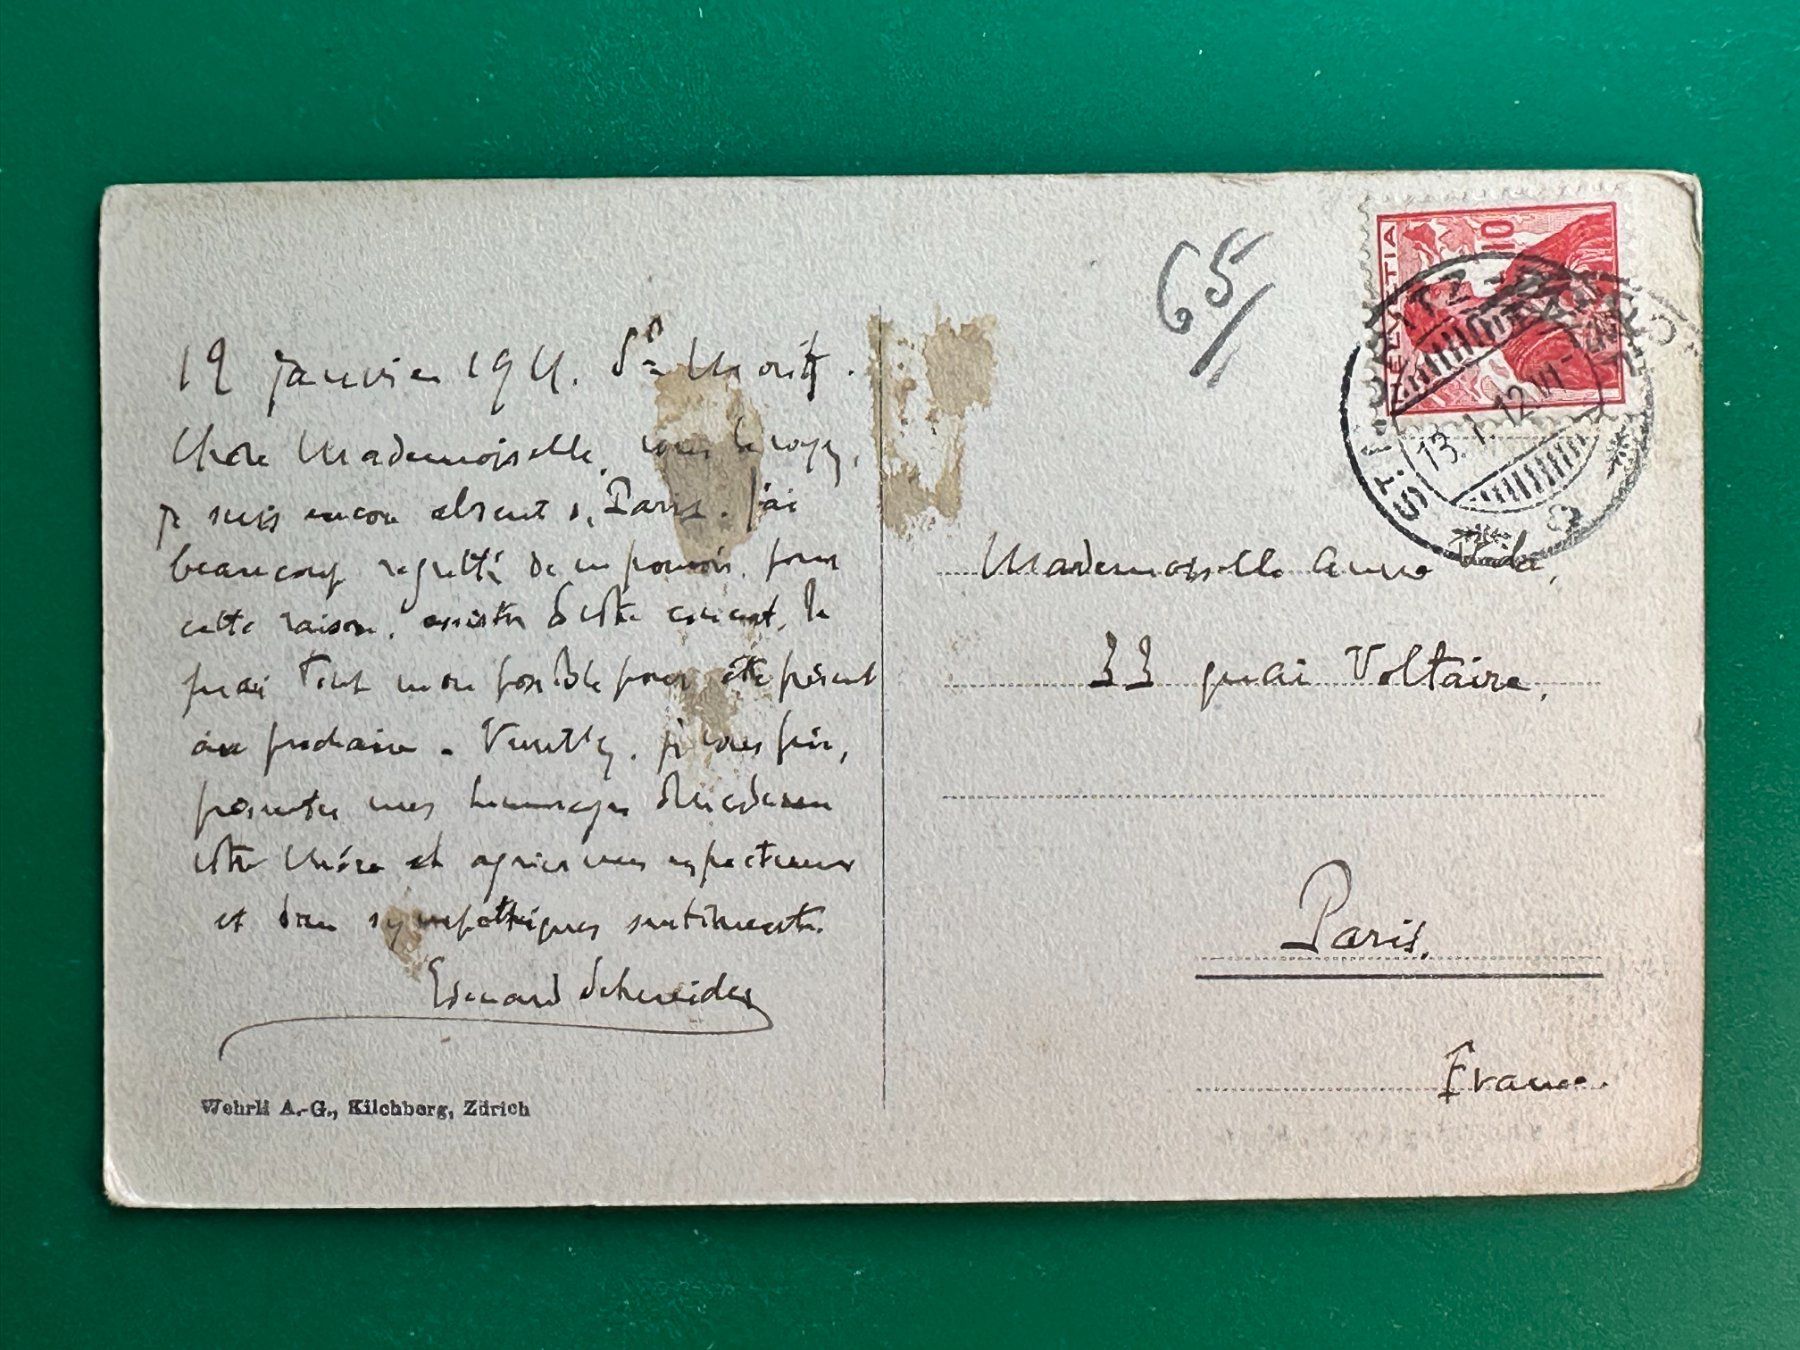 12 Janvier 1911. St Moritz.
Chère Mademoiselle, vous le voyez,
je suis encore absent de Paris. J'ai
beaucoup regretté de ne pouvoir, pour
cette raison, assister à votre concert. Je
ferai tout mon possible pour être présent
au prochain. Veuillez, je vous prie,
présenter mes hommages à Madame
votre Mère et agréer mes respectueux
et bien sympathiques sentiments.
Edouard Schneider
Wehrli A.-G., Kilchberg, Zürich
65
HELVETIA
10
ST. MORITZ-DORF
13. I. 11
Mademoiselle Anne
33 quai Voltaire,
Paris,
France.